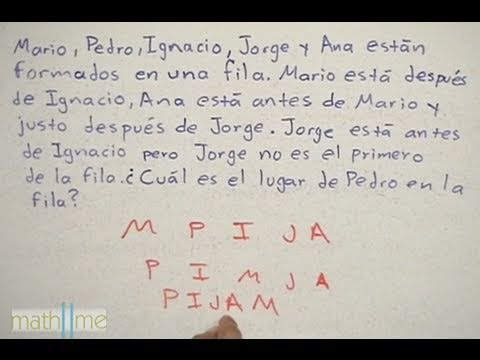 Mario, Pedro, Ignacio, Jorge y Ana están
formados en una fila. Mario está después
de Ignacio, Ana está antes de Mario y
justo después de Jorge. Jorge está antes
de Ignacio pero Jorge no es el primero
de la fila. ¿Cuál es el lugar de Pedro en la
fila?
M P I J A
P I M J A
P I J A M
math me